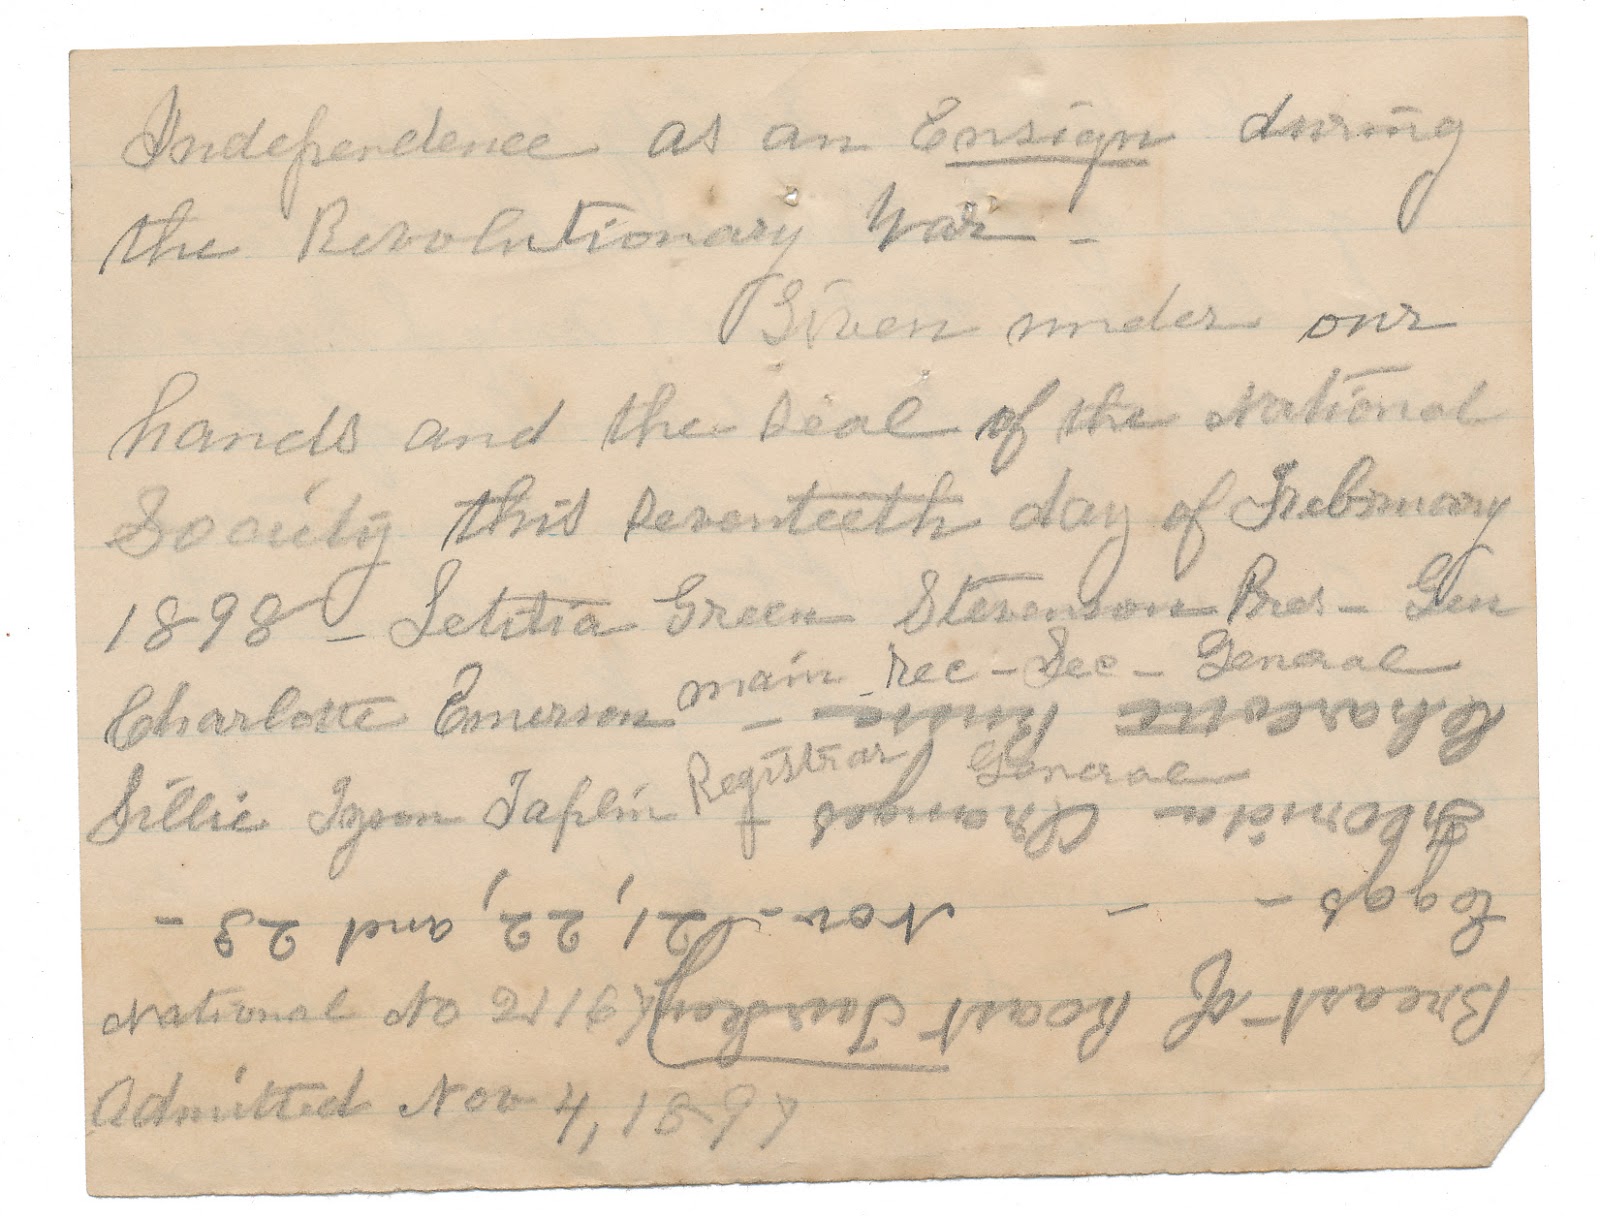 Independence as an Ensign during
the Revolutionary War -
Given under our
hands and the seal of the National
Society this seventeeth day of February
1898 - Letitia Green Stevenson Pres - Gen
Charlotte Emerson main rec - Sec - General
Lillie Tyson Taplin Registrar General
National No 21196
Admitted Nov 4, 1897
Breast of Roast Turkey
Eggs - - Nov - 21, 22, and 23 -
Florida Oranges -
Charlotte Russe -